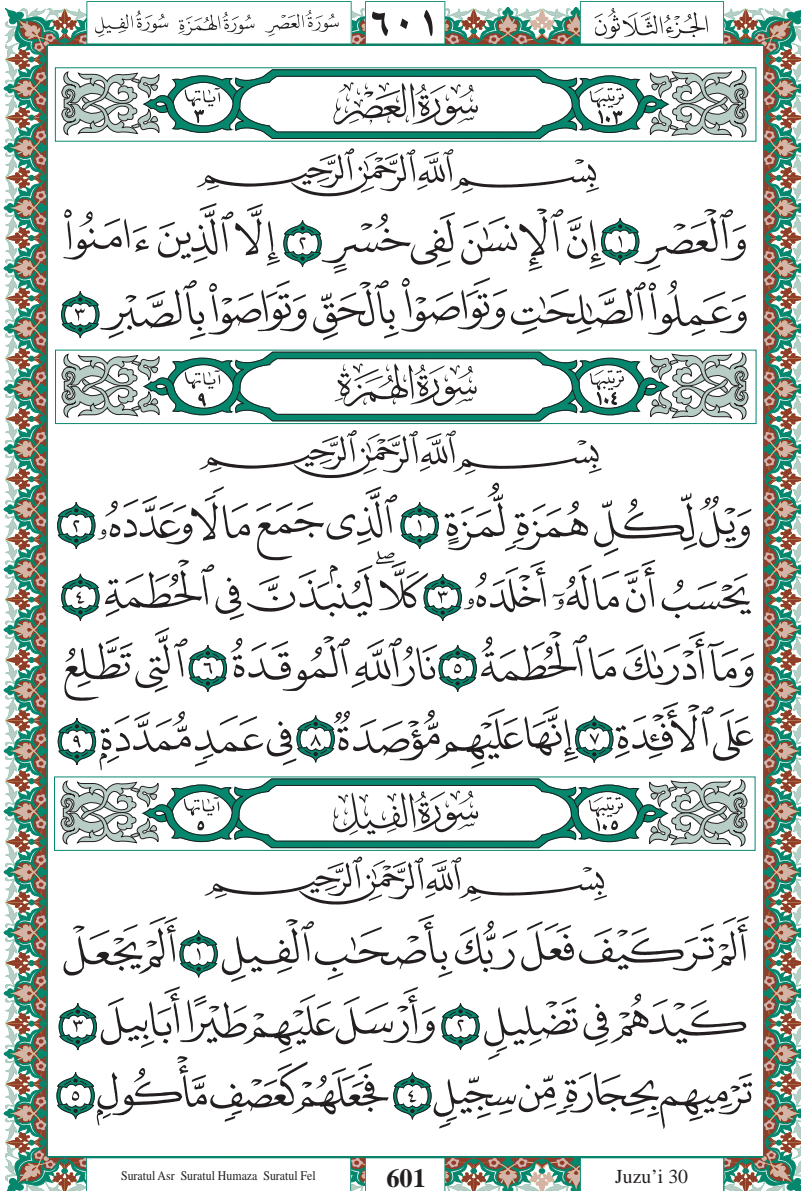 الجُزْءُ الثَّلَاثُونَ ٦٠١ سُورَةُ العَصْرِ سُورَةُ الهُمَزَةِ سُورَةُ الفِيلِ
تَرْتِيبُهَا ١٠٣ سُورَةُ العَصْرِ آيَاتُهَا ٣
بِسْمِ ٱللَّهِ ٱلرَّحْمَٰنِ ٱلرَّحِيمِ
وَٱلْعَصْرِ ١ إِنَّ ٱلْإِنسَٰنَ لَفِى خُسْرٍ ٢ إِلَّا ٱلَّذِينَ ءَامَنُوا۟
وَعَمِلُوا۟ ٱلصَّٰلِحَٰتِ وَتَوَاصَوْا۟ بِٱلْحَقِّ وَتَوَاصَوْا۟ بِٱلصَّبْرِ ٣
تَرْتِيبُهَا ١٠٤ سُورَةُ الهُمَزَةِ آيَاتُهَا ٩
بِسْمِ ٱللَّهِ ٱلرَّحْمَٰنِ ٱلرَّحِيمِ
وَيْلٌ لِّكُلِّ هُمَزَةٍ لُّمَزَةٍ ١ ٱلَّذِى جَمَعَ مَالًا وَعَدَّدَهُۥ ٢
يَحْسَبُ أَنَّ مَالَهُۥٓ أَخْلَدَهُۥ ٣ كَلَّا ۖ لَيُنۢبَذَنَّ فِى ٱلْحُطَمَةِ ٤
وَمَآ أَدْرَىٰكَ مَا ٱلْحُطَمَةُ ٥ نَارُ ٱللَّهِ ٱلْمُوقَدَةُ ٦ ٱلَّتِى تَطَّلِعُ
عَلَى ٱلْأَفْـِٔدَةِ ٧ إِنَّهَا عَلَيْهِم مُّؤْصَدَةٌ ٨ فِى عَمَدٍ مُّمَدَّدَةٍۭ ٩
تَرْتِيبُهَا ١٠٥ سُورَةُ الفِيلِ آيَاتُهَا ٥
بِسْمِ ٱللَّهِ ٱلرَّحْمَٰنِ ٱلرَّحِيمِ
أَلَمْ تَرَ كَيْفَ فَعَلَ رَبُّكَ بِأَصْحَٰبِ ٱلْفِيلِ ١ أَلَمْ يَجْعَلْ
كَيْدَهُمْ فِى تَضْلِيلٍ ٢ وَأَرْسَلَ عَلَيْهِمْ طَيْرًا أَبَابِيلَ ٣
تَرْمِيهِم بِحِجَارَةٍ مِّن سِجِّيلٍ ٤ فَجَعَلَهُمْ كَعَصْفٍ مَّأْكُولٍۭ ٥
Suratul Asr Suratul Humaza Suratul Fel 601 Juzu'i 30